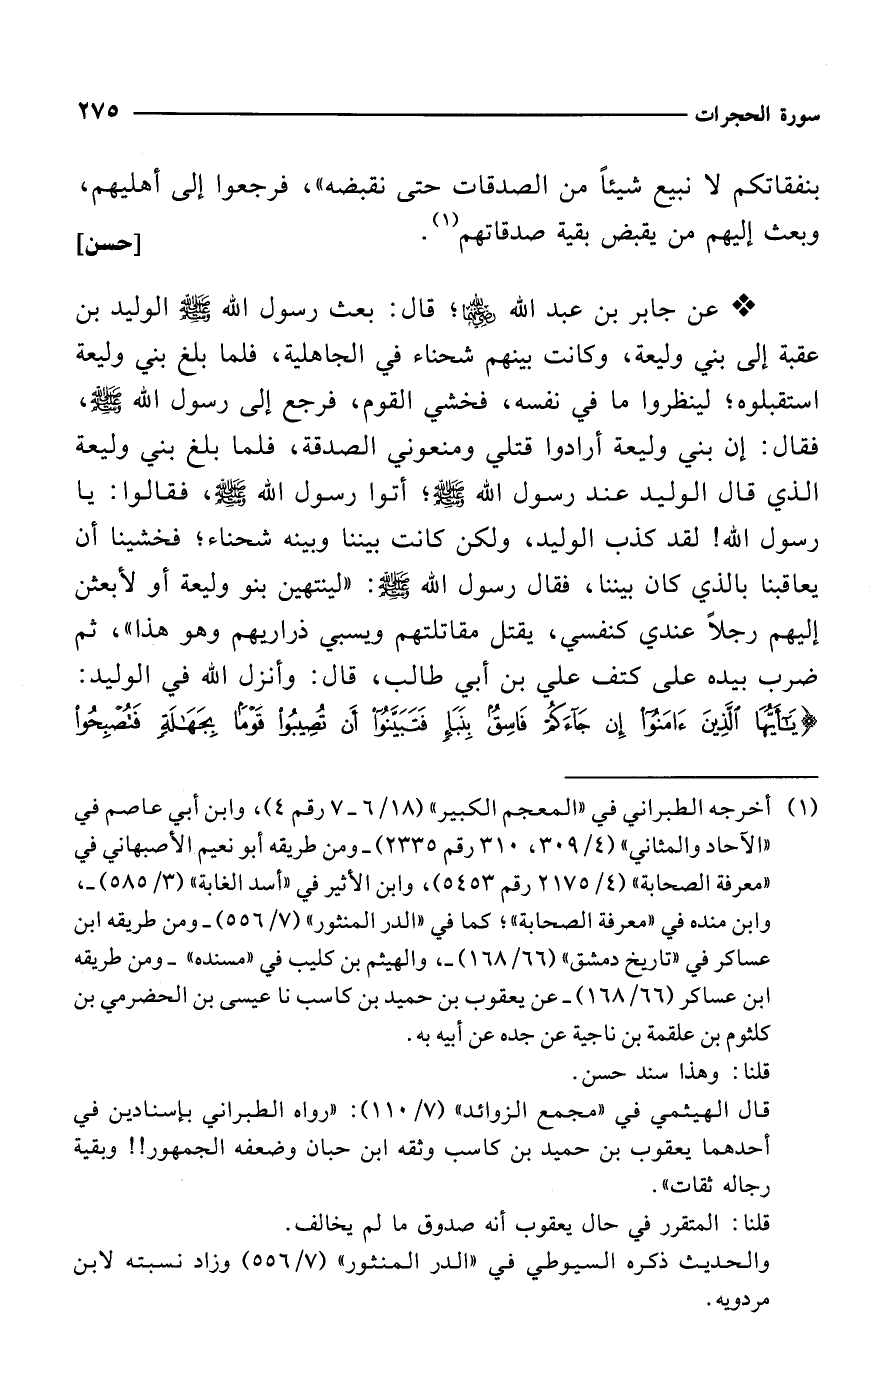 سورة الحجرات ٢٧٥
بنفقاتكم لا نبيع شيئاً من الصدقات حتى نقبضه»، فرجعوا إلى أهليهم،
وبعث إليهم من يقبض بقية صدقاتهم(١). [حسن]
❖ عن جابر بن عبد الله رضي الله عنهما؛ قال: بعث رسول الله ﷺ الوليد بن
عقبة إلى بني وليعة، وكانت بينهم شحناء في الجاهلية، فلما بلغ بني وليعة
استقبلوه؛ لينظروا ما في نفسه، فخشي القوم، فرجع إلى رسول الله ﷺ،
فقال: إن بني وليعة أرادوا قتلي ومنعوني الصدقة، فلما بلغ بني وليعة
الذي قال الوليد عند رسول الله ﷺ؛ أتوا رسول الله ﷺ، فقالوا: يا
رسول الله! لقد كذب الوليد، ولكن كانت بيننا وبينه شحناء؛ فخشينا أن
يعاقبنا بالذي كان بيننا، فقال رسول الله ﷺ: «لينتهين بنو وليعة أو لأبعثن
إليهم رجلاً عندي كنفسي، يقتل مقاتلتهم ويسبي ذراريهم وهو هذا»، ثم
ضرب بيده على كتف علي بن أبي طالب، قال: وأنزل الله في الوليد:
﴿يَٰٓأَيُّهَا ٱلَّذِينَ ءَامَنُوٓا۟ إِن جَآءَكُمْ فَاسِقٌۢ بِنَبَإٍ فَتَبَيَّنُوٓا۟ أَن تُصِيبُوا۟ قَوْمًۢا بِجَهَٰلَةٍ فَتُصْبِحُوا۟
(١) أخرجه الطبراني في «المعجم الكبير» (١٨/ ٦ ـ ٧ رقم ٤)، وابن أبي عاصم في
«الآحاد والمثاني» (٤/ ٣٠٩، ٣١٠ رقم ٢٣٣٥) ـ ومن طريقه أبو نعيم الأصبهاني في
«معرفة الصحابة» (٤/ ٢١٧٥ رقم ٥٤٥٣)، وابن الأثير في «أسد الغابة» (٣/ ٥٨٥) ـ،
وابن منده في «معرفة الصحابة»؛ كما في «الدر المنثور» (٧/ ٥٥٦) ـ ومن طريقه ابن
عساكر في «تاريخ دمشق» (٦٦/ ١٦٨) ـ، والهيثم بن كليب في «مسنده» ـ ومن طريقه
ابن عساكر (٦٦/ ١٦٨) ـ عن يعقوب بن حميد بن كاسب نا عيسى بن الحضرمي بن
كلثوم بن علقمة بن ناجية عن جده عن أبيه به.
قلنا: وهذا سند حسن.
قال الهيثمي في «مجمع الزوائد» (٧/ ١١٠): «رواه الطبراني بإسنادين في
أحدهما يعقوب بن حميد بن كاسب وثقه ابن حبان وضعفه الجمهور!! وبقية
رجاله ثقات».
قلنا: المتقرر في حال يعقوب أنه صدوق ما لم يخالف.
والحديث ذكره السيوطي في «الدر المنثور» (٧/ ٥٥٦) وزاد نسبته لابن
مردويه.